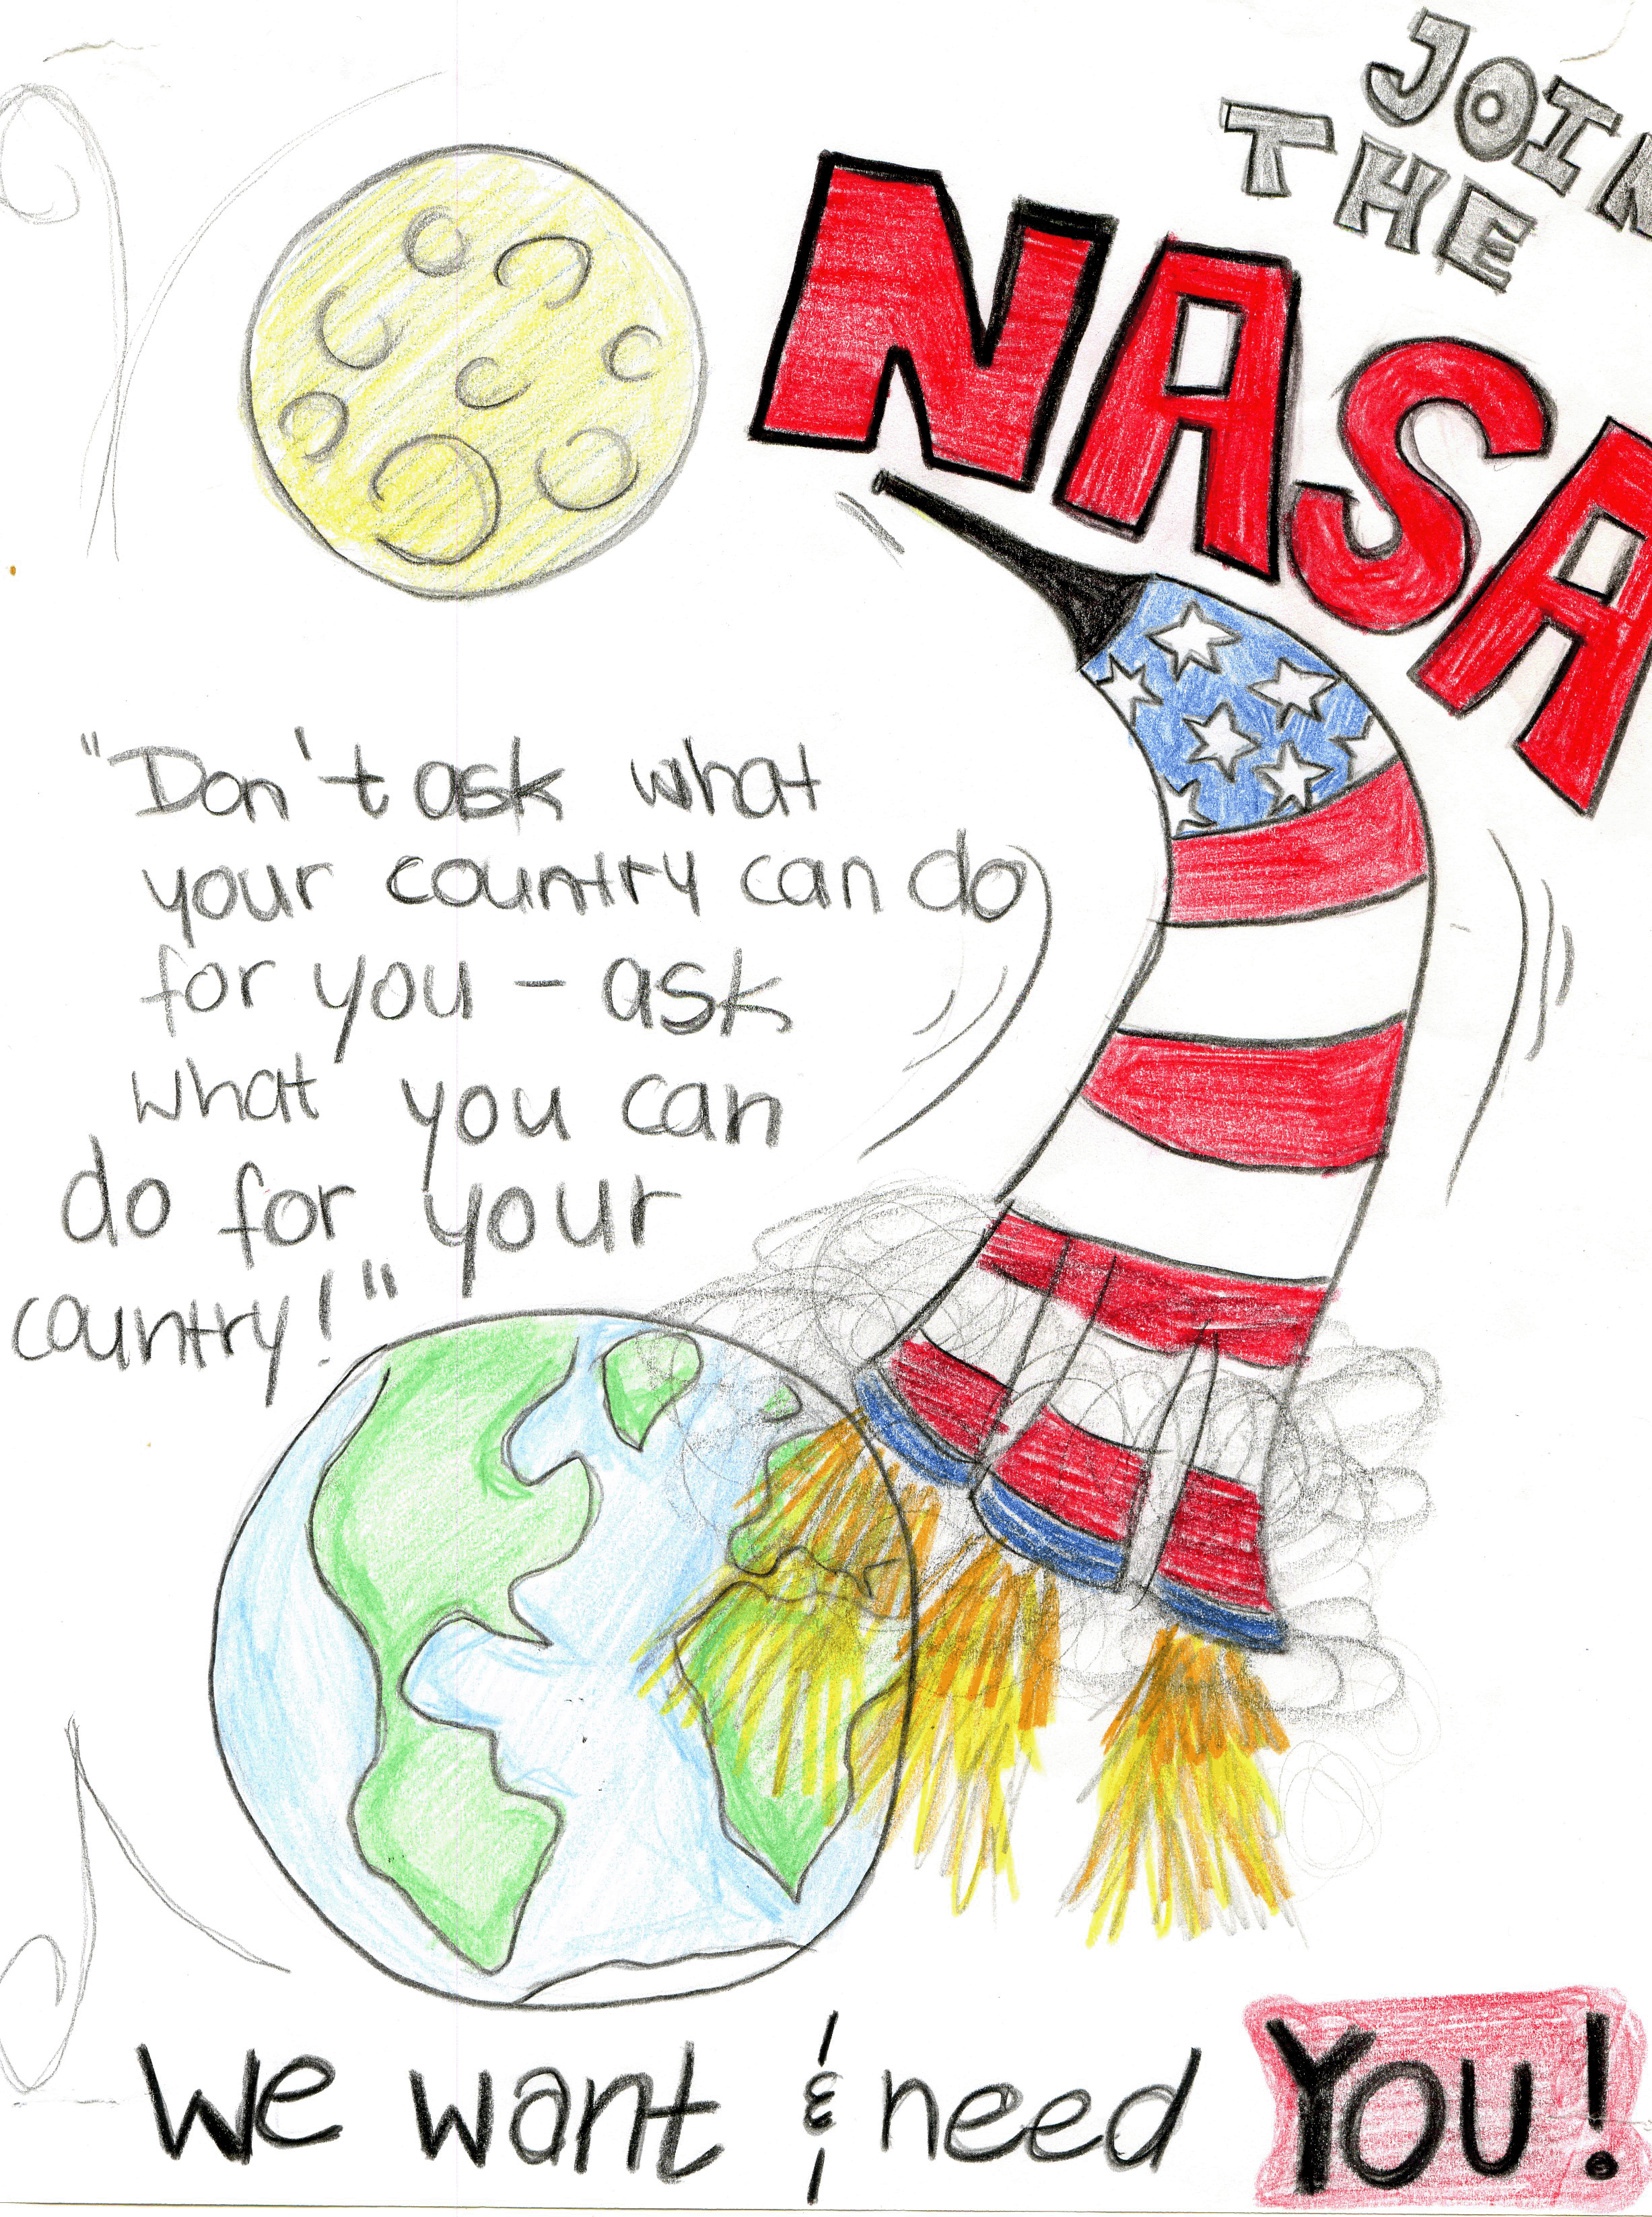 JOIN
THE
NASA
"Don't ask what
your country can do
for you - ask
what you can
do for your
country!"
We want & need YOU!